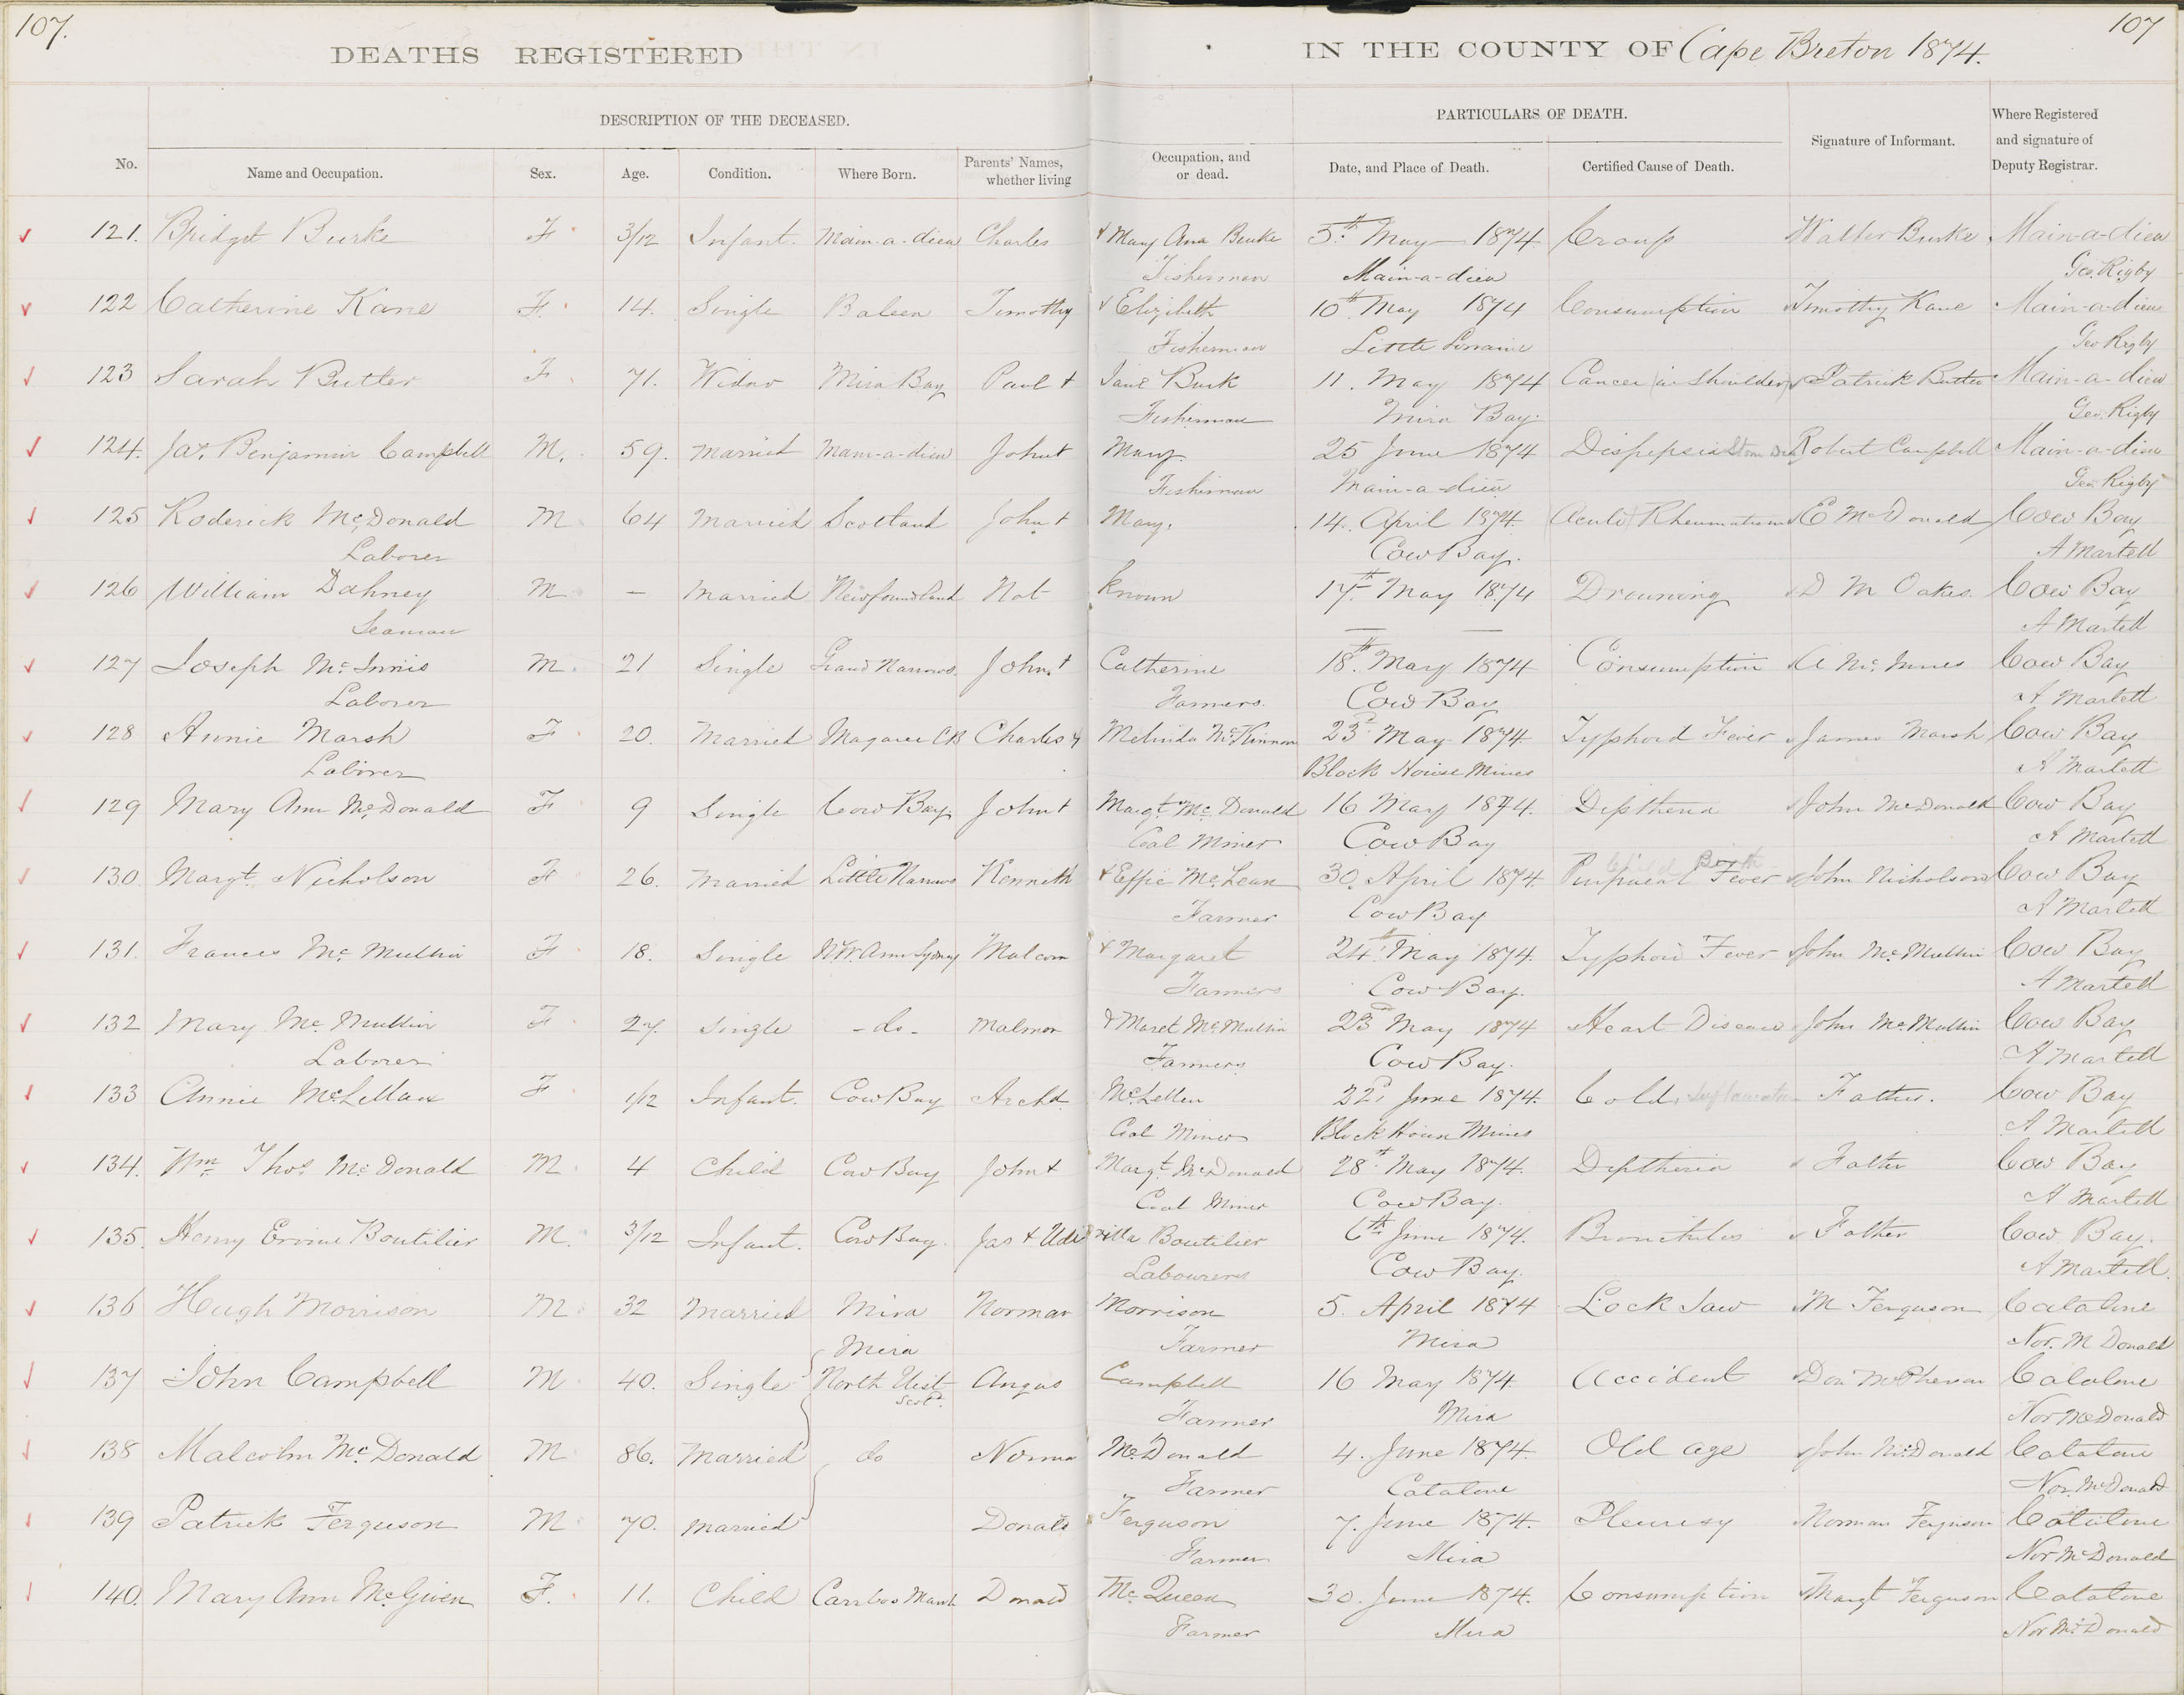 107. 107
DEATHS REGISTERED IN THE COUNTY OF Cape Breton 1874.
DESCRIPTION OF THE DECEASED. PARTICULARS OF DEATH. Signature of Informant. Where Registered and signature of Deputy Registrar.
No. Name and Occupation. Sex. Age. Condition. Where Born. Parents' Names, whether living Occupation, and or dead. Date, and Place of Death. Certified Cause of Death.
121. Bridget Burke F. 3/12 Infant. Main-a-dieu Charles & Mary Ann Burke 5th May 1874. Croup Walter Burke Main-a-dieu
Fisherman Main-a-dieu Geo. Rigby
122 Catherine Kane F. 14. Single Baleen Timothy & Elizibeth 10th May 1874 Consumption Timothy Kane Main-a-dieu
Fisherman Little Loraine Geo Rigby
123 Sarah Butler F. 71. Widow Mira Bay Paul & Jane Burk 11. May 1874 Cancer in Shoulder Patrick Butler Main-a-dieu
Fisherman Mira Bay. Geo. Rigby
124. Jas. Benjamin Campbell M. 59. Married Main-a-dieu John & Mary. 25 June 1874 Dispepsia Robert Campbell Main-a-dieu
Fisherman Main-a-dieu Geo. Rigby
125 Roderick McDonald M 64 Married Scotland John & Mary. 14. April 1874. Acute Rheumatism E McDonald Cow Bay
Laborer Cow Bay. A Martell
126 William Dahney M — Married Newfoundland Not known 17th May 1874 Drowning D M Oakes. Cow Bay
Seaman — — A Martell
127 Joseph McInnis M. 21 Single Grand Narrows. John & Catherine 18th May 1874 Consumption A McInnes Cow Bay
Laborer Farmers. Cow Bay A Martell
128 Annie Marsh F. 20. Married Magaree CB Charles & Melinda McKinnon 23d May 1874. Typhoid Fever James Marsh Cow Bay
Laborer Block House Mines A Martell
129 Mary Ann McDonald F 9 Single Cow Bay. John & Margt. McDonald 16 May 1874. Diptheria John McDonald Cow Bay
Coal Miner Cow Bay A Martell
Child Birth
130. Margt. Nicholson F 26. Married Little Narrows Kenneth & Effie McLean 30. April 1874. Fever John Nicholson Cow Bay
Farmer Cow Bay A Martell
131. Frances McMullin F 18. Single N.W. Arm Sydney Malcom & Margaret 24th May 1874. Typhoid Fever John McMullin Cow Bay
Farmers Cow Bay. A Martell
132 Mary McMullin F 27. Single -do- Malmon & Maret McMullin 23d May 1874 Heart Disease John McMullin Cow Bay
Laborer Farmers Cow Bay. A Martell
133 Annie McLellan F 1/12 Infant. Cow Bay Archd. McLellen 22d June 1874. Cold, Father. Cow Bay
Coal Miner Block House Mines A Martell
134. Wm. Thos McDonald M. 4 Child Cow Bay John & Margt. McDonald 28th May 1874. Diptheria Father Cow Bay
Coal Miner Cow Bay. A Martell
135. Henry Ervine Boutilier M. 3/12 Infant. Cow Bay. Jas & Boutilier 6th June 1874. Bronchitis Father Cow Bay.
Labourers Cow Bay. A Martell.
136 Hugh Morrison M. 32 Married Mira Norman Morrison 5. April 1874 Lock Jaw M Ferguson Catalone
Mira Farmer Mira Nor. McDonald
137 John Campbell M. 40. Single North Uist Scotd. Angus Campbell 16 May 1874 Accident Don McPherson Catalone
Farmer Mira Nor McDonald
138 Malcolm McDonald M 86. Married do Norman McDonald 4. June 1874. Old age John McDonald Catalone
Farmer Catalone Nor. McDonald
139 Patrick Ferguson M 70. Married Donald Ferguson 7. June 1874. Pleurisy Norman Ferguson Catalone
Farmer Mira Nor McDonald
140. Mary Ann McGiven F. 11. Child Carriboo Marsh Donald McQueen 30. June 1874. Consumption Margt Ferguson Catalone
Farmer Mira Nor McDonald